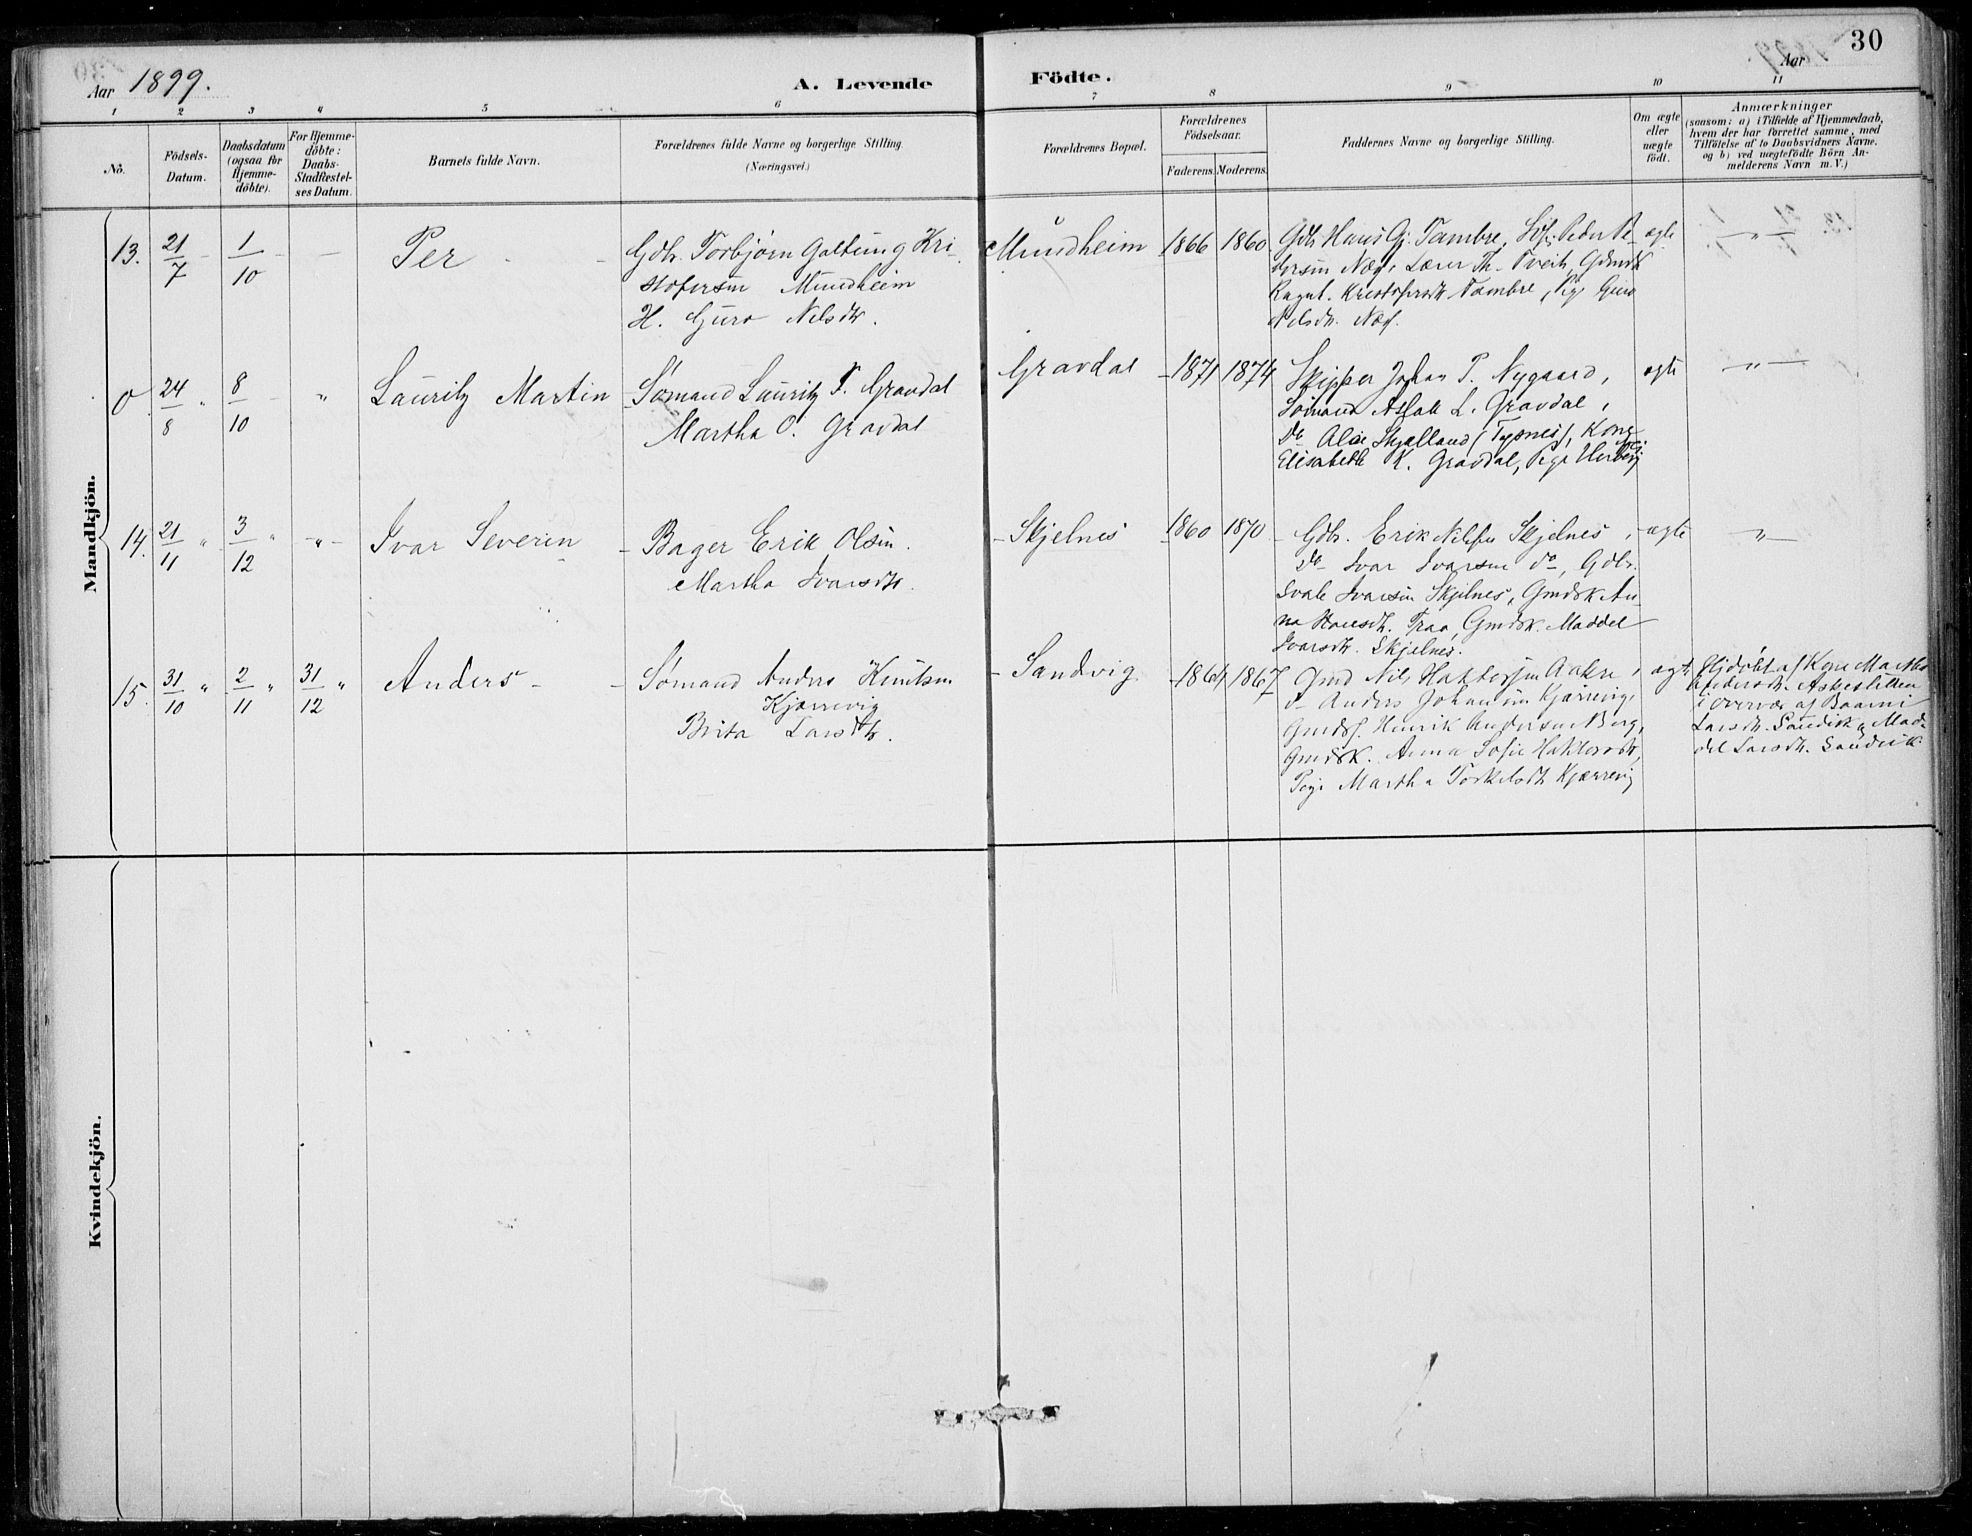 30
Aar 1899.
A. Levende Födte.
Aar
1 2 3 4 5 6 7 8 9 10 11
No.
Födsels-
Datum.
Daabsdatum
(ogsaa for
Hjemme-
döbte).
For Hjemme-
döbte:
Daabs-
Stadfæstel-
ses Datum.
Barnets fulde Navn.
Forældrenes fulde Navne og borgerlige Stilling
(Næringsvei.)
Forældrenes Bopæl.
Forældrenes
Födselsaar.
Faderens. Moderens.
Faddernes Navne og borgerlige Stilling.
Om ægte
eller
uægte
födt.
Anmærkninger
(saasom: a) i Tilfælde af Hjemmedaab,
hvem der har forrettet samme, med
Tilföielse af to Daabsvidners Navne.
og b) ved uægtefödte Börn An-
melderens Navn m. V.)
Mandkjön.
13. 21/7 - 1/10 - - Per - -
Gdbr. Torbjørn Galtung Kri-
stofersen Mundheim
H. Guro Nilsdtr.
Mundheim 1866 1860
Gdbr Hans Gj. Tambre, Peder Pe-
dersen Næs, Lærer Th. Tveit, Gdmdk
Ragnh. Kristofersdtr Tambre, Pige Guro
Nilsdtr. Næs.
ægte
0 24/8 " 8/10 - " Lauritz Martin
Sømand Lauritz T. Gravdal
Martha O. Gravdal
Gravdal - 1871 1874
Skipper Johan P. Nygaard,
Sømand Aslak L. Gravdal,
Do Skjælland (Tysnes), Kone
Elisabeth K. Gravdal, Pige
ægte - " -
14. 21/11 " 3/12 " - " - Ivar Severin
- Bager Erik Olsen.
Martha Ivarsdtr.
- Skjelnes - 1860 1870
- Gdbr. Erik Nilsen Skjelnes,
Do Ivar Ivarsen do, Gdbr.
Ivarsen Skjelnes, Gmdsk An-
na Hansdtr. Traa, Gmdsk. Maddel
Ivarsdtr. Skjelnes.
- ægte - " -
15. 31/10 " 2/11 " 31/12 " Anders - -
Sømand Anders Knutsen
Kjærrevig
Brita Larsdtr.
- Sandvig. - 1864 1867
Gmd Nils Haktorsen Aakre,
do Anders Johannesen Kjærrevig,
Gmds. Henrik Andersen Berg,
Gmdsk. Anna Sofie Haktorsdtr,
Pige Martha Torkelsdtr Kjærrevig
ægte
Hjdøbt af Kone Martha
Andersdtr.
i Overvær af
Larsdtr. Sandvik & Mad-
del Larsdtr. Sandvik.
Kvindekjön.